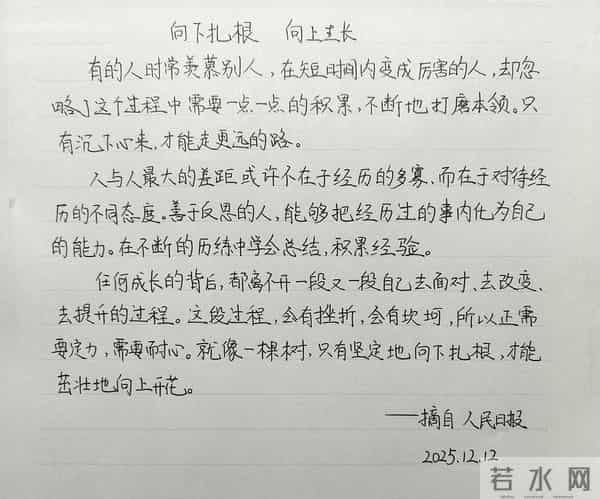 向下扎根 向上生长
有的人时常羡慕别人,在短时间内变成厉害的人,却忽
略了这个过程中需要一点一点的积累,不断地打磨本领。只
有沉下心来,才能走更远的路。
人与人最大的差距或许不在于经历的多寡、而在于对待经
历的不同态度。善于反思的人,能够把经历过的事内化为自己
的能力。在不断的历练中学会总结,积累经验。
任何成长的背后,都离不开一段又一段自己去面对、去改变、
去提升的过程。这段过程,会有挫折,会有坎坷,所以正需
要定力,需要耐心。就像一棵树,只有坚定地向下扎根,才能
茁壮地向上开花。
——摘自 人民日报
2025.12.12
若水网